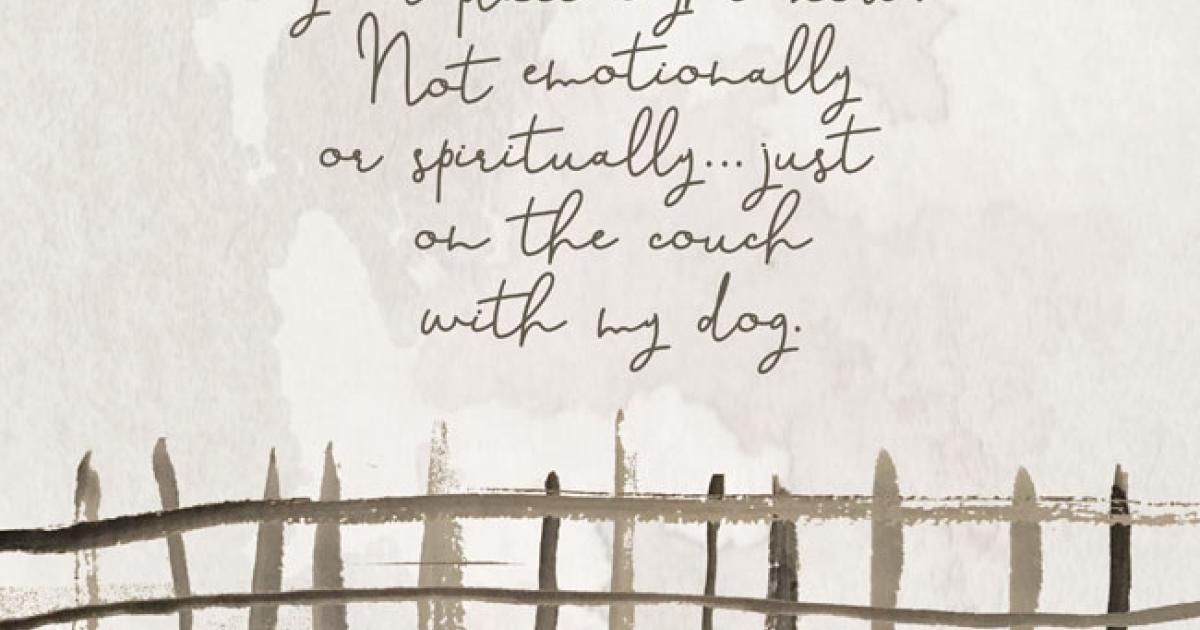 Not emotionally
or spiritually...just
on the couch
with my dog.